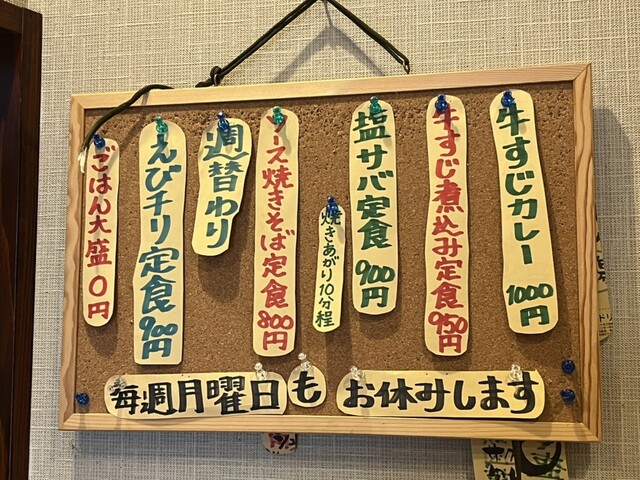 牛すじカレー 1000円
牛すじ煮込み定食 950円
塩サバ定食 900円
焼きあがり10分程
ソース焼きそば定食 800円
週替わり
えびチリ定食 900円
ごはん大盛 0円
毎週月曜日も お休みします